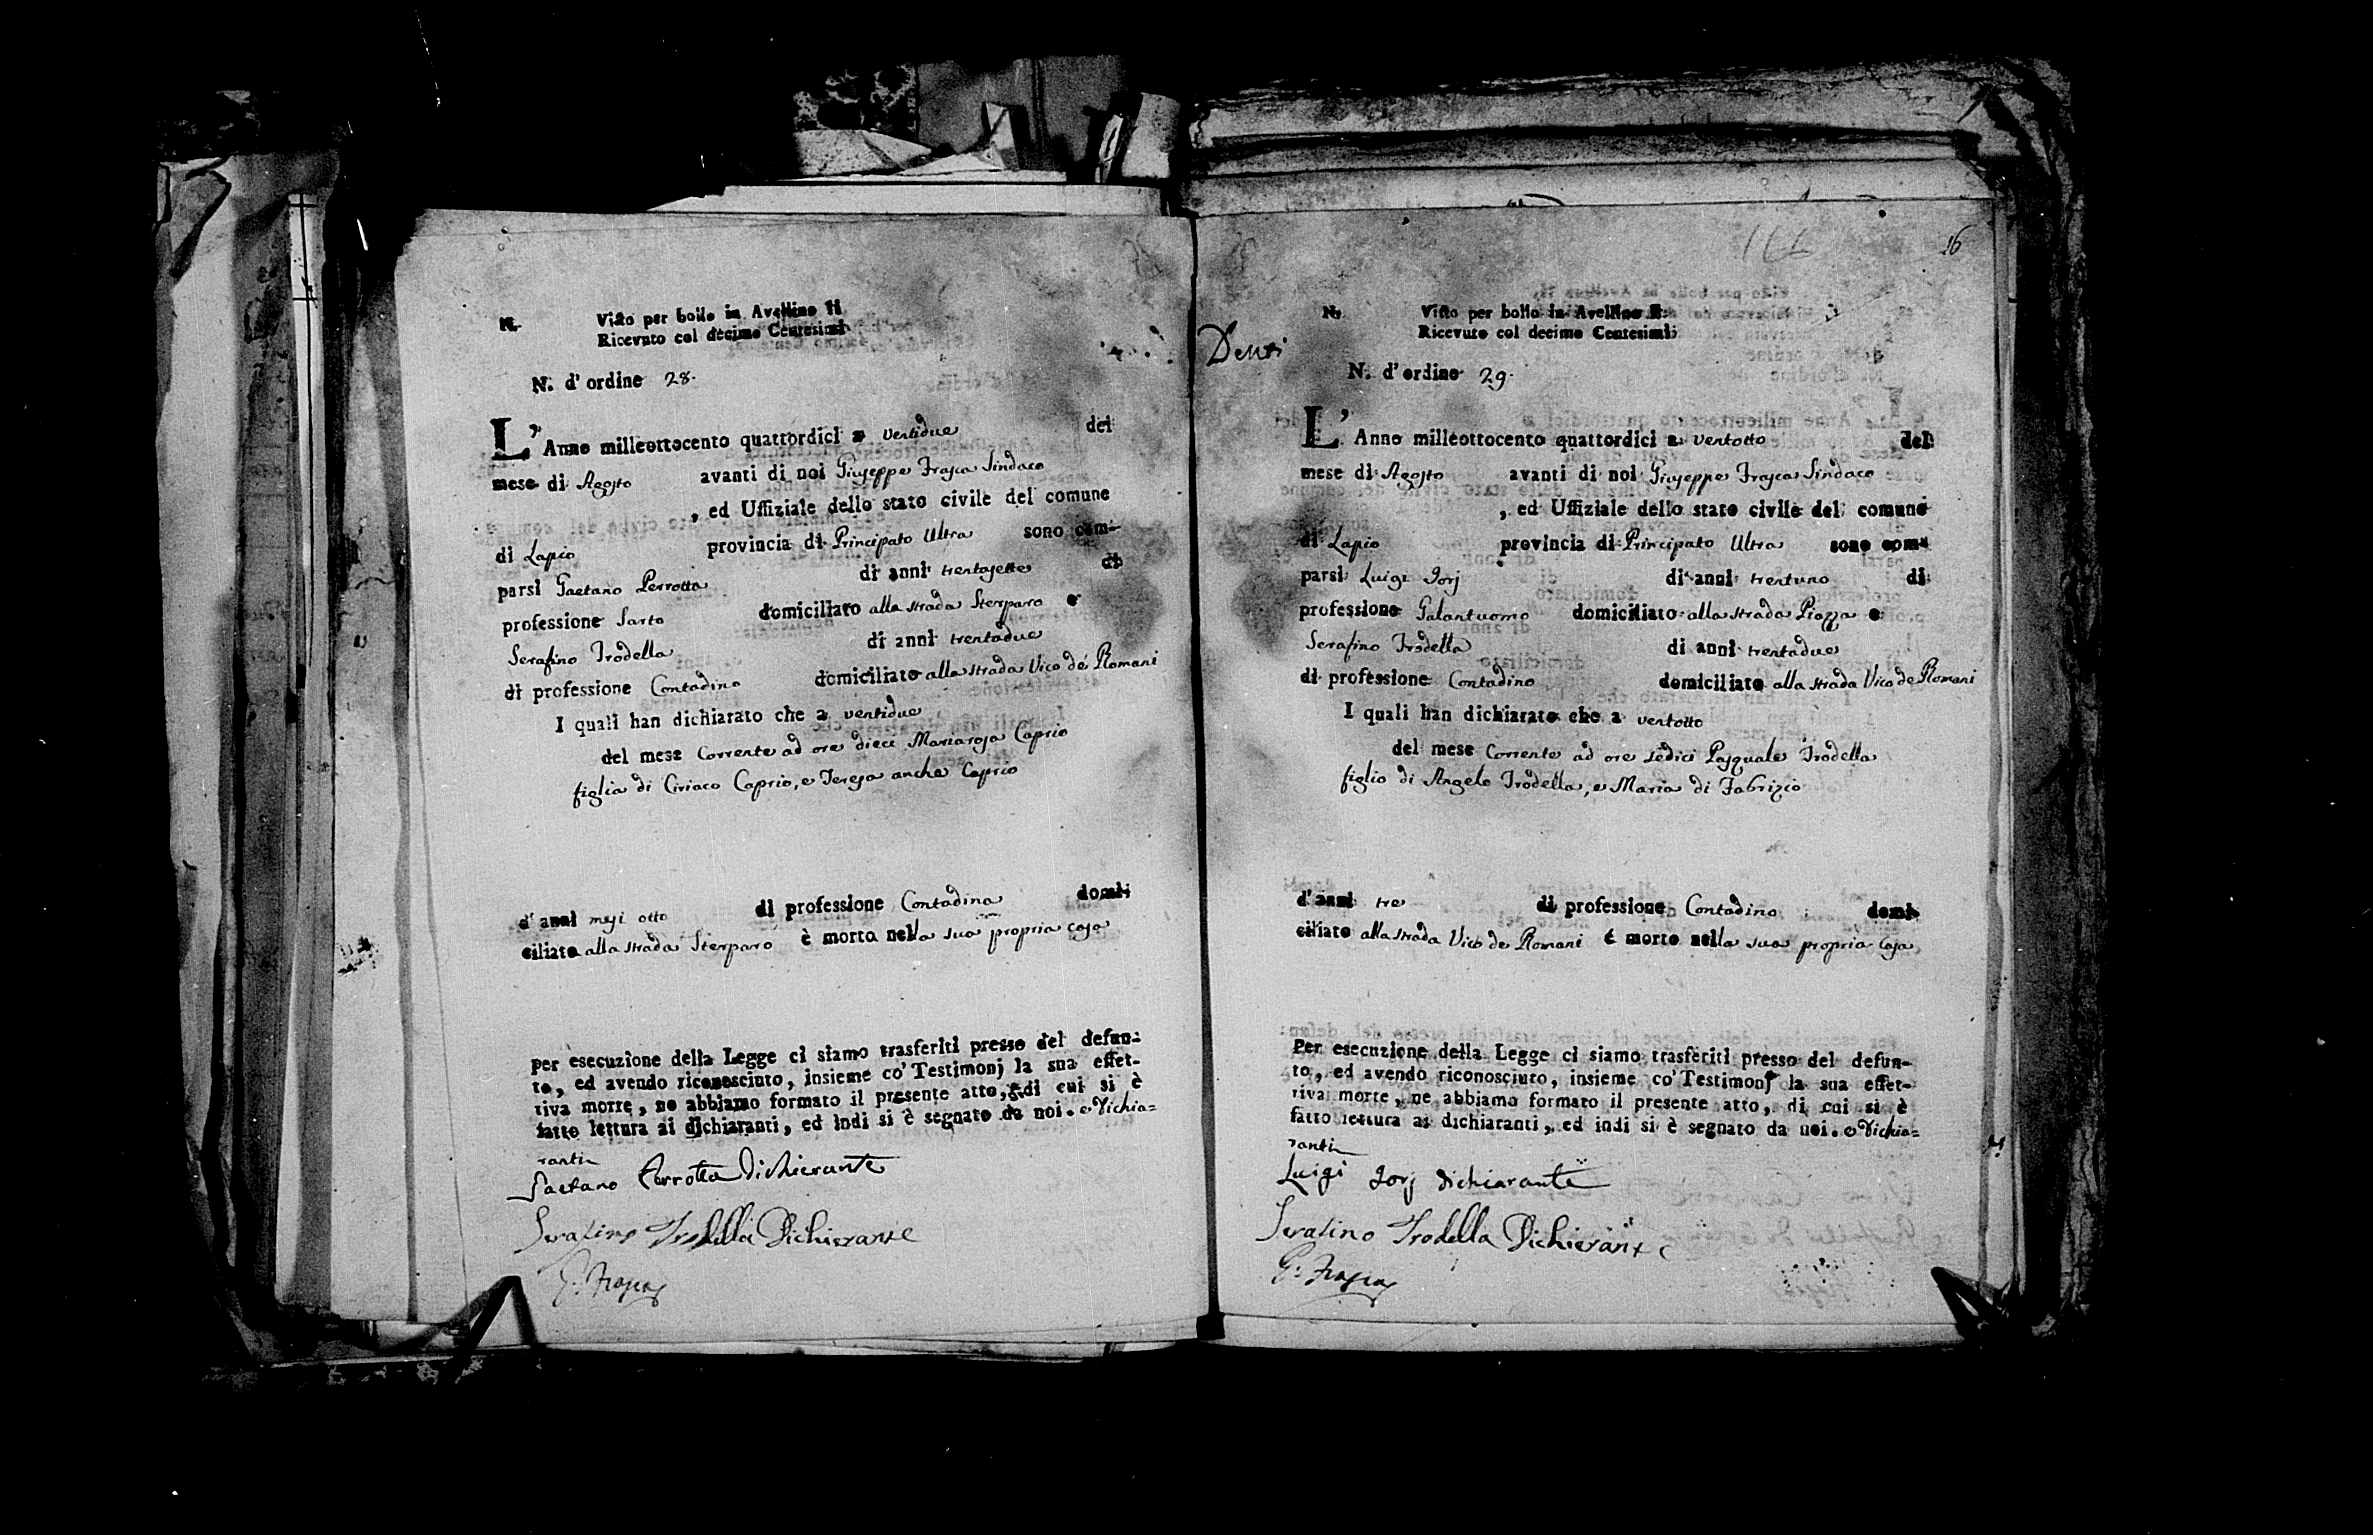 N.
Visto per bollo in Avellino li
Ricevuto col decimo Centesimi
N. d' ordine 28.
L' Anno milleottocento quattordici a ventidue del
mese di Agosto avanti di noi Giuseppe Frasca Sindaco
, ed Uffiziale dello stato civile del comune
di Lapio provincia di Principato Ultra sono com-
parsi Gaetano Perrotta di anni trentasette di
professione Sarto domiciliato alla strada Sterparo e
Serafino Trodella di anni trentadue
di professione Contadino domiciliato alla strada Vico de' Romani
I quali han dichiarato che a ventidue
del mese corrente ad ore dieci Mariarosa Caprio
figlia di Ciriaco Caprio, e Teresa anche Caprio
d' anni mesi otto di professione Contadina domi-
ciliata alla strada Sterparo è morta nella sua propria casa
per esecuzione della Legge ci siamo trasferiti presso del defun-
to, ed avendo riconosciuto, insieme co' Testimonj la sua effet-
tiva morte, ne abbiamo formato il presente atto, di cui si è
fatto lettura ai dichiaranti, ed indi si è segnato da noi. e dichia=
ranti
Gaetano Perrotta Dichierante
Serafino Trodella Dichierante
G. Frasca
16
N.
Visto per bollo in Avellino li
Ricevuto col decimo Centesimi
N. d' ordine 29.
L' Anno milleottocento quattordici a ventotto del
mese di Agosto avanti di noi Giuseppe Frasca Sindaco
, ed Uffiziale dello stato civile del comune
di Lapio provincia di Principato Ultra sono com-
parsi Luigi Jorj di anni trentuno di
professione Galantuomo domiciliato alla strada Piazza e
Serafino Trodella di anni trentadue
di professione Contadino domiciliato alla strada Vico de Romani
I quali han dichiarato che a ventotto
del mese corrente ad ore sedici Pasquale Trodella
figlio di Angelo Trodella, e Maria di Fabrizio
d' anni tre di professione Contadino domi-
ciliato alla strada Vico de Romani è morto nella sua propria casa
Per esecuzione della Legge ci siamo trasferiti presso del defun-
to, ed avendo riconosciuto, insieme co' Testimonj la sua effet-
tiva morte, ne abbiamo formato il presente atto, di cui si è
fatto lettura ai dichiaranti, ed indi si è segnato da noi. e dichia=
ranti
Luigi Jorj dichiarante
Serafino Trodella Dichierante
G. Frasca